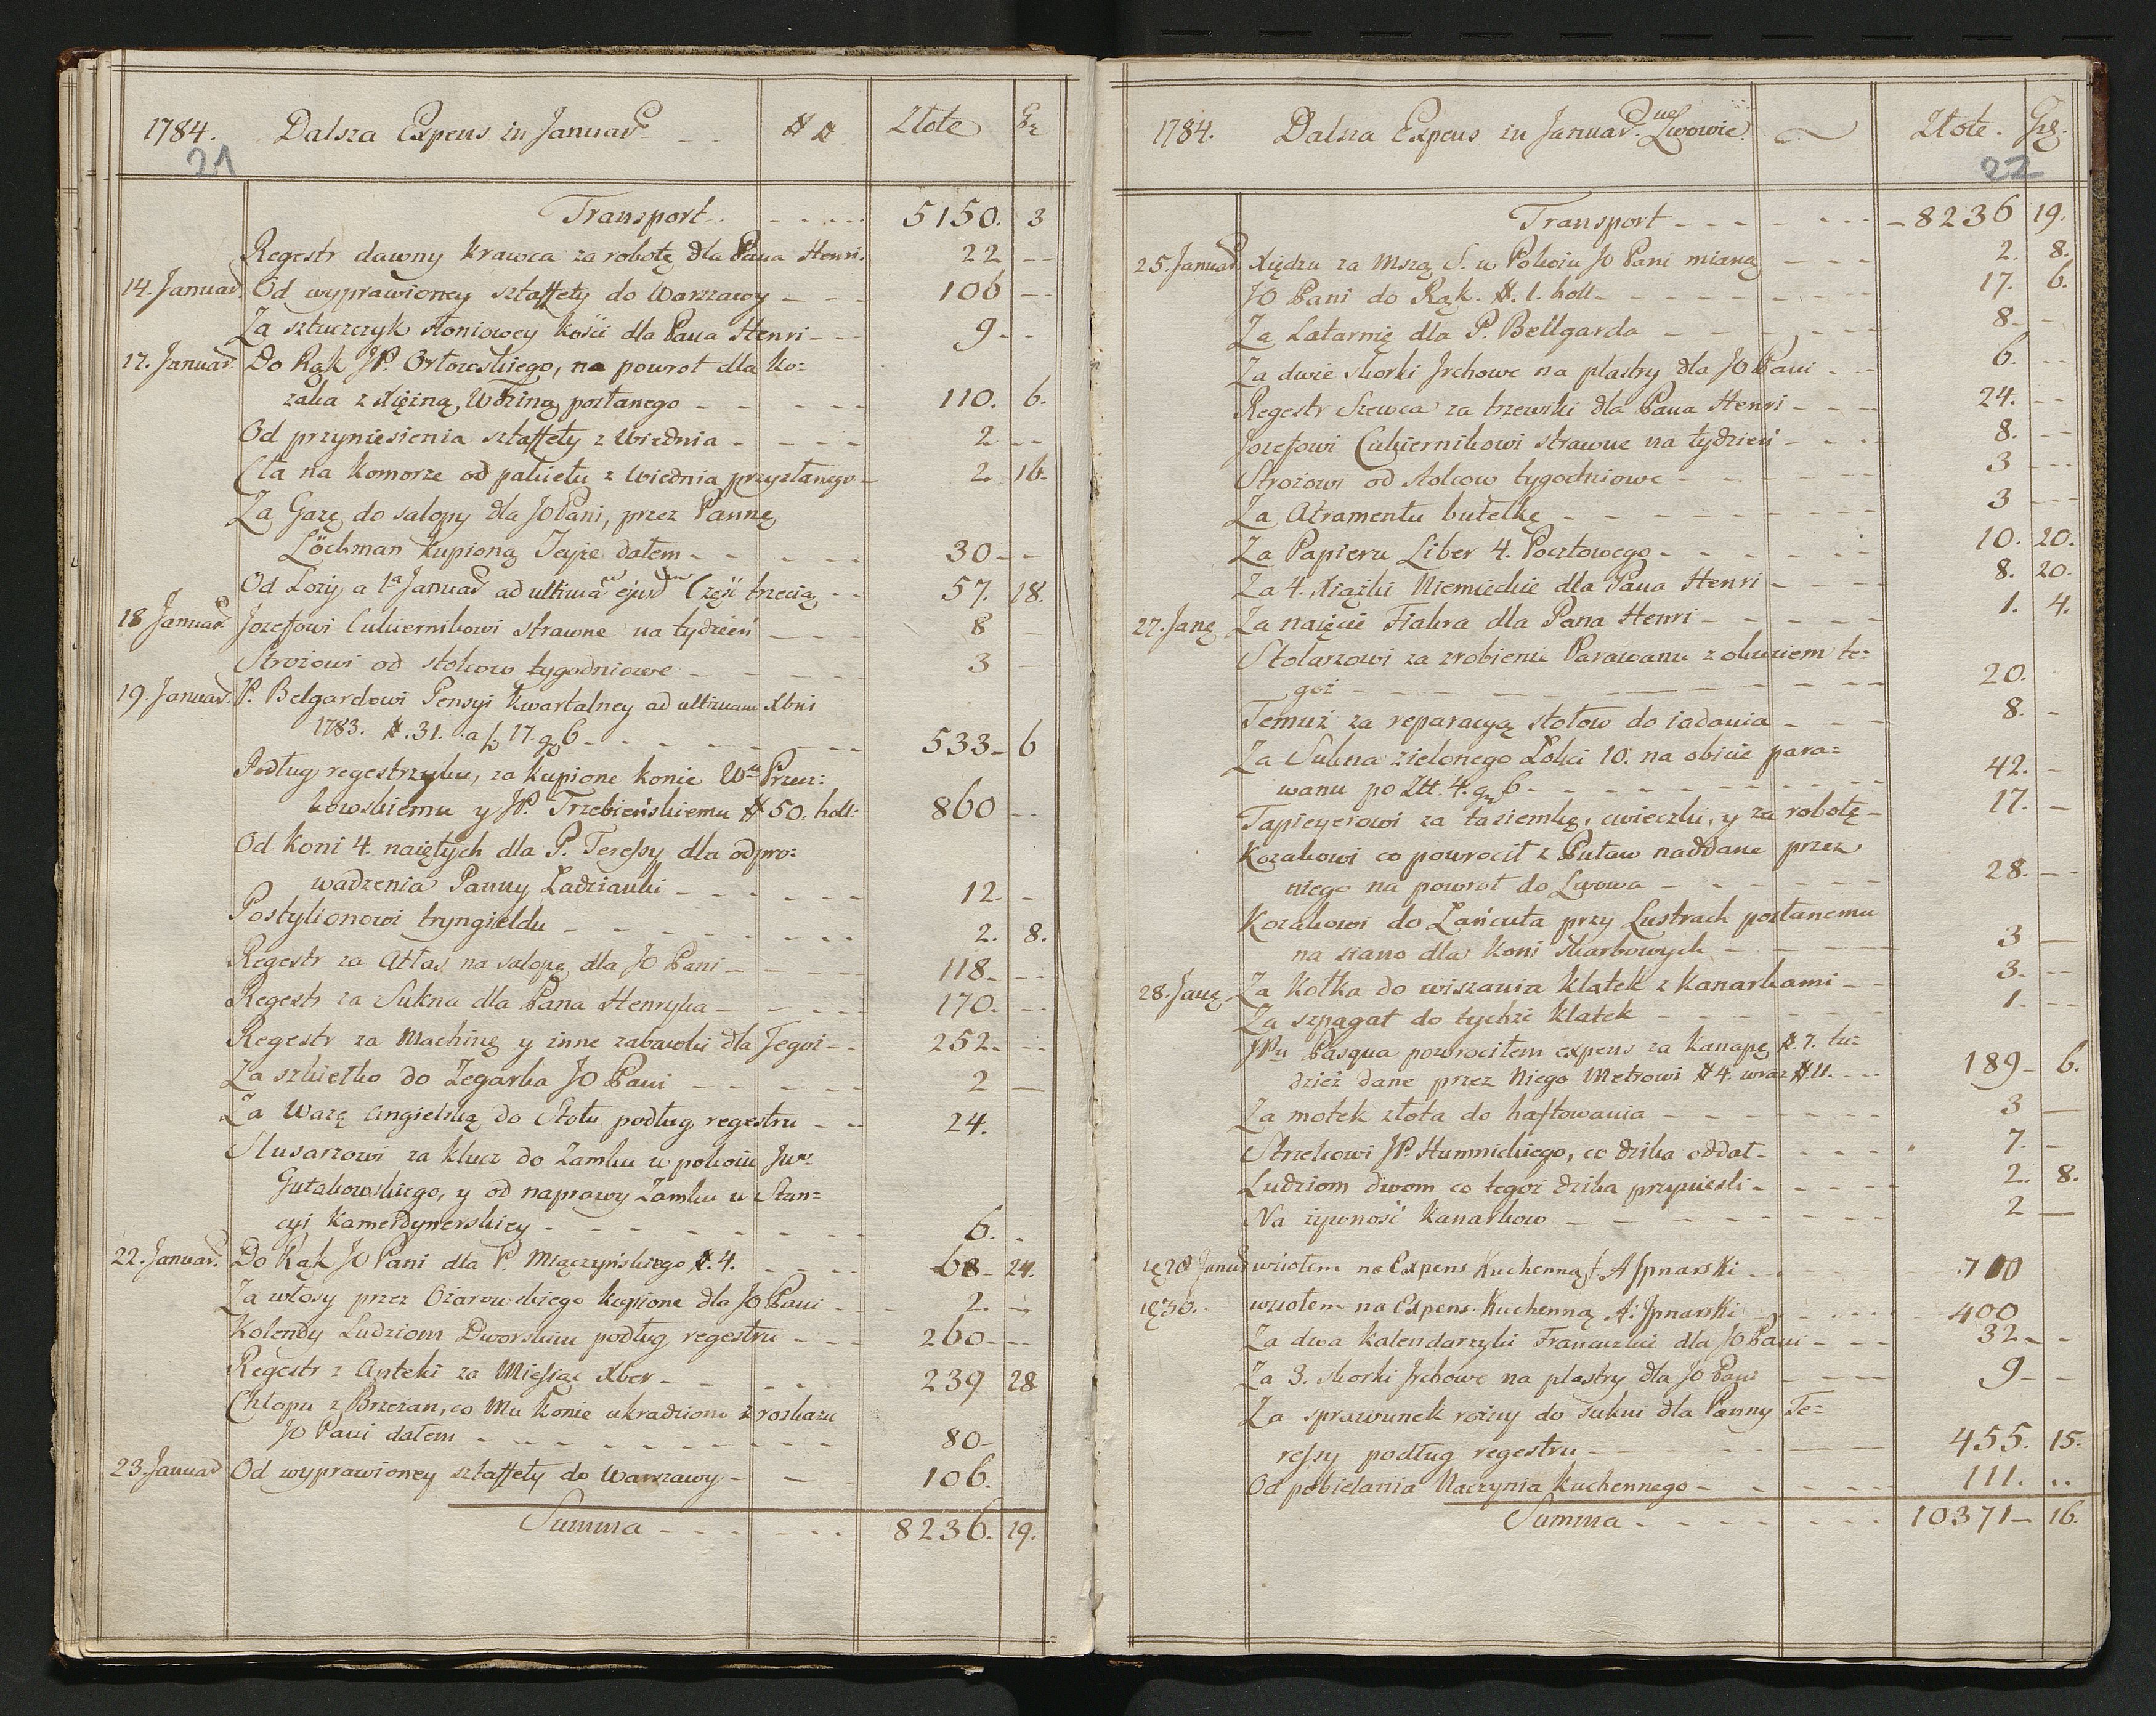 1784. Dalsza Expens in Januar. # # Złote Gr
21
Transport 5150. 3
Regestr dawny krawca za robotę dla Pana Henri. 22
14. Januar. Od wyprawioney sztaffety do Warszawy 106
Za sztuczczyk słoniowey kości dla Pana Henri 9
17. Januar. Do Rąk JP. Orłowskiego, na powrot dla ko=
zaka z Xiężną Wdziną posłanego 110. 6.
Od przyniesienia sztaffety z Wiednia 2
Cła na komorze od pakietu z Wiednia przysłanego 2. 16.
Za Gazę do salopy dla JO Pani, przez Pannę
Löchman kupioną Jeyże dałem 30
Od Loży a 1a Januar ad ultima ejusd Część trzecią 57. 18.
18 Januar. Jozefowi Cukiernikowi strawne na tydzień 8
Strożowi od stołow tygodniowe 3
19. Januar. P. Belgardowi Pensyi kwartalney ad ultimam Xbris
1783. #. 31. a f. 17. g 6 533 6
Podług regestrzyku, za kupione konie Wu Przecz=
kowskiemu y JP. Trzebieńskiemu # 50. holl: 860
Od koni 4. naiętych dla P. Teressy dla odpro=
wadzenia Panny Ładzianki 12.
Postylionowi tryngieldu 2. 8.
Regestr za Atłas na salopę dla JO Pani 118
Regestr za Sukna dla Pana Henryka 170.
Regestr za Machinę y inne zabawki dla Tegoż 252.
Za szkiełko do Zegarka JO Pani 2
Za Wazę Angielską do Stołu podług regestru 24.
Slusarzowi za klucz do Zamku w pokoiu Jm
Gutakowskiego, y od naprawy Zamku w Stan=
cyi Kamerdynerskiey 6.
22. Januar. Do Rąk JO Pani dla P. Miączyńskiego #. 4. 68 24.
Za włosy przez Ożarowskiego kupione dla JO Pani 2.
Kolendy Ludziom Dworskim podług regestru 260
Regestr z Apteki za Miesiąc Xber 239 28
Chłopu z Brzezan, co Mu konie ukradziono z roskazu
JO Pani dałem 80
23. Januar Od wyprawioney sztaffety do Warszawy 106.
Summa 8236. 19.
1784. Dalsza Expens in Januar. we Lwowie. Złote. Grę.
22
Transport 8236 19.
25. Januar. Xiędzu za Mszą S. w Pokoiu JO Pani mianą 2. 8.
JO Pani do Rąk. #. 1. holl 17. 6.
Za Latarnię dla P. Bellgarda 8
Za dwie skorki Jrchowe na plastry dla JO Pani 6.
Regestr Szewca za trzewiki dla Pana Henri 24.
Jozefowi Cukiernikowi strawne na tydzień 8.
Strożowi od stołow tygodniowe 3
Za Atramentu butelkę 3
Za Papieru Liber 4. Pocztowego 10. 20.
Za 4. Xiążki Niemieckie dla Pana Henri 8. 20.
27. Janę Za naięcie Fiakra dla Pana Henri 1. 4.
Stolarzowi za zrobienie Parawanu z okuciem te=
goż 20.
Temuż za reparacyą stołow do iadania 8.
Za Sukna zielonego Łokci 10. na obicie para=
wanu po Złł. 4. g 6 42.
Tapicyerowi za tasiemkę, cwieczki, y za robotę 17.
Kozakowi co powrocił z Puław naddane przez
niego na powrot do Lwowa 28.
Kozakowi do Łańcuta przy Lustrach posłanemu
na siano dla koni skarbowych 3
28. Janę. Za kołka do wiszania klatek z kanarkami 3.
Za szpagat do tychże klatek 1.
JPu Pasqua powrociłem expens za kanapę #. 7. tu=
dzież dane przez Niego Metrowi # 4. wraz # 11. 189 6.
Za motek złota do haftowania 3
Strzelcowi JP. Humnickiego, co dzika oddał 7.
Ludziom dwom co tegoż dzika przynieśli 2. 8.
Na żywność kanarkow 2
28 Januar wziołem na Expens Kuchenną 700
30. wziołem na Expens. Kuchenną 400
Za dwa kalendarzyki Francuzkie dla JO Pani 32
Za 3. skorki Jrchowe na plastry dla JO Pani 9
Za sprawunek rożny do sukni dla Panny Te=
ressy podług regestru 455. 15.
Od pobielania Naczynia Kuchennego 111.
Summa 10371 16.